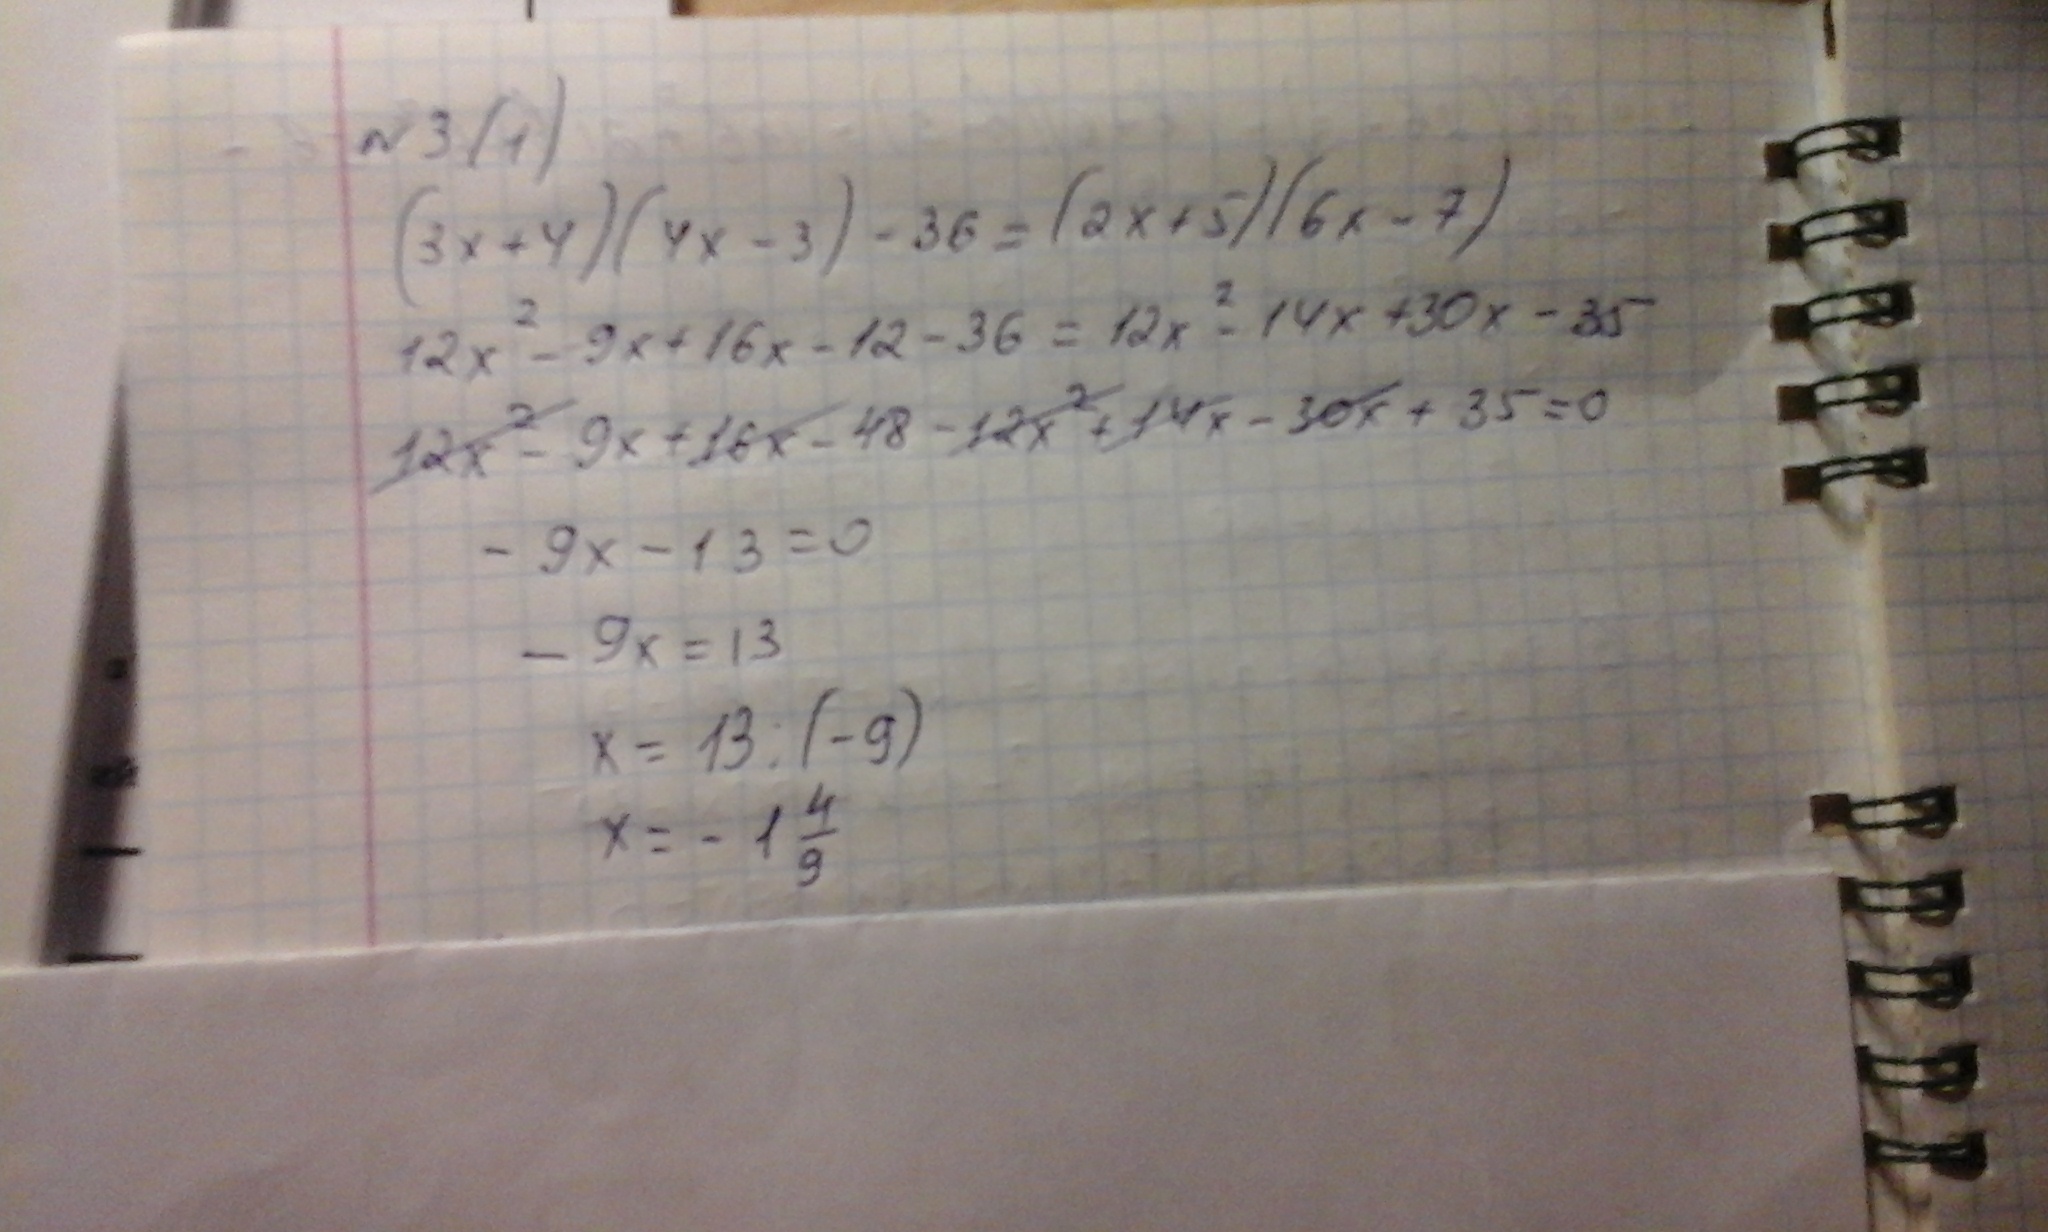 №3(1)
(3x+4)(4x-3)-36=(2x+5)(6x-7)
12x²-9x+16x-12-36=12x²-14x+30x-35
12x²-9x+16x-48-12x²+14x-30x+35=0
-9x-13=0
-9x=13
x=13:(-9)
x=-1 4/9